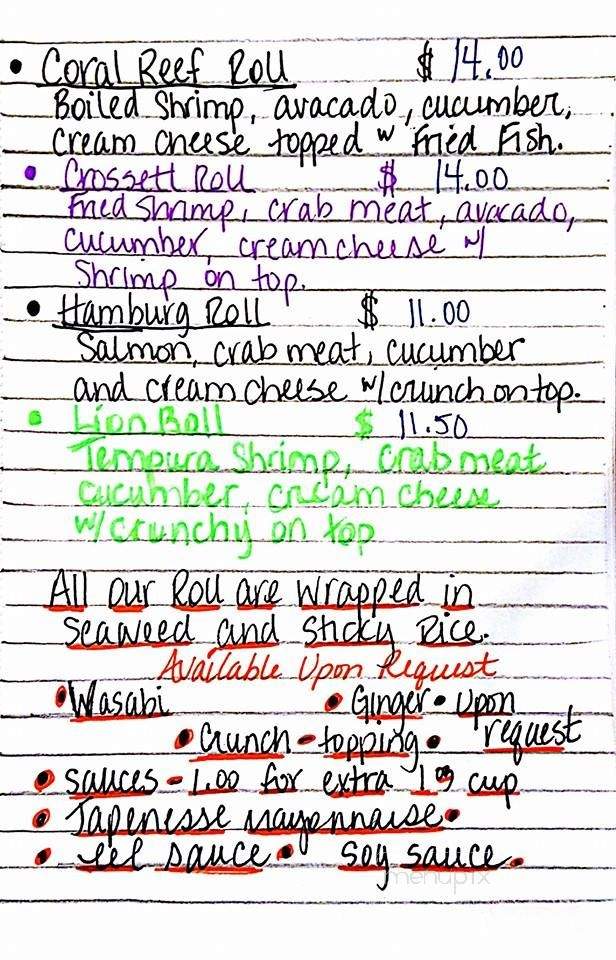 • Coral Reef Roll $ 14.00
Boiled Shrimp, avacado, cucumber,
cream cheese topped w Fried Fish.
• Crossett Roll $ 14.00
Fried Shrimp, crab meat, avacado,
cucumber, cream cheese w/
Shrimp on top.
• Hamburg Roll $ 11.00
Salmon, crab meat, cucumber
and cream cheese w/crunch on top.
• Lion Roll $ 11.50
Tempura Shrimp, crab meat
cucumber, cream cheese
w/crunchy on top
All our Roll are wrapped in
seaweed and sticky Rice.
Available Upon Request
• Wasabi • Ginger • upon
• Crunch - topping • request
• sauces - 1.00 for extra 1 oz cup
• Japenesse mayonnaise •
• eel sauce • soy sauce •
menupix